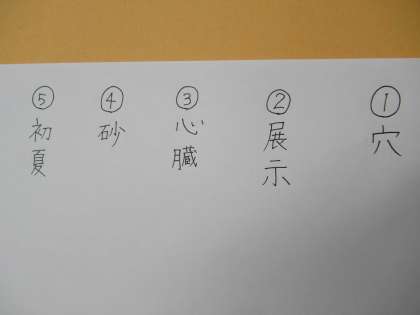 ①穴
②展示
③心臓
④砂
⑤初夏